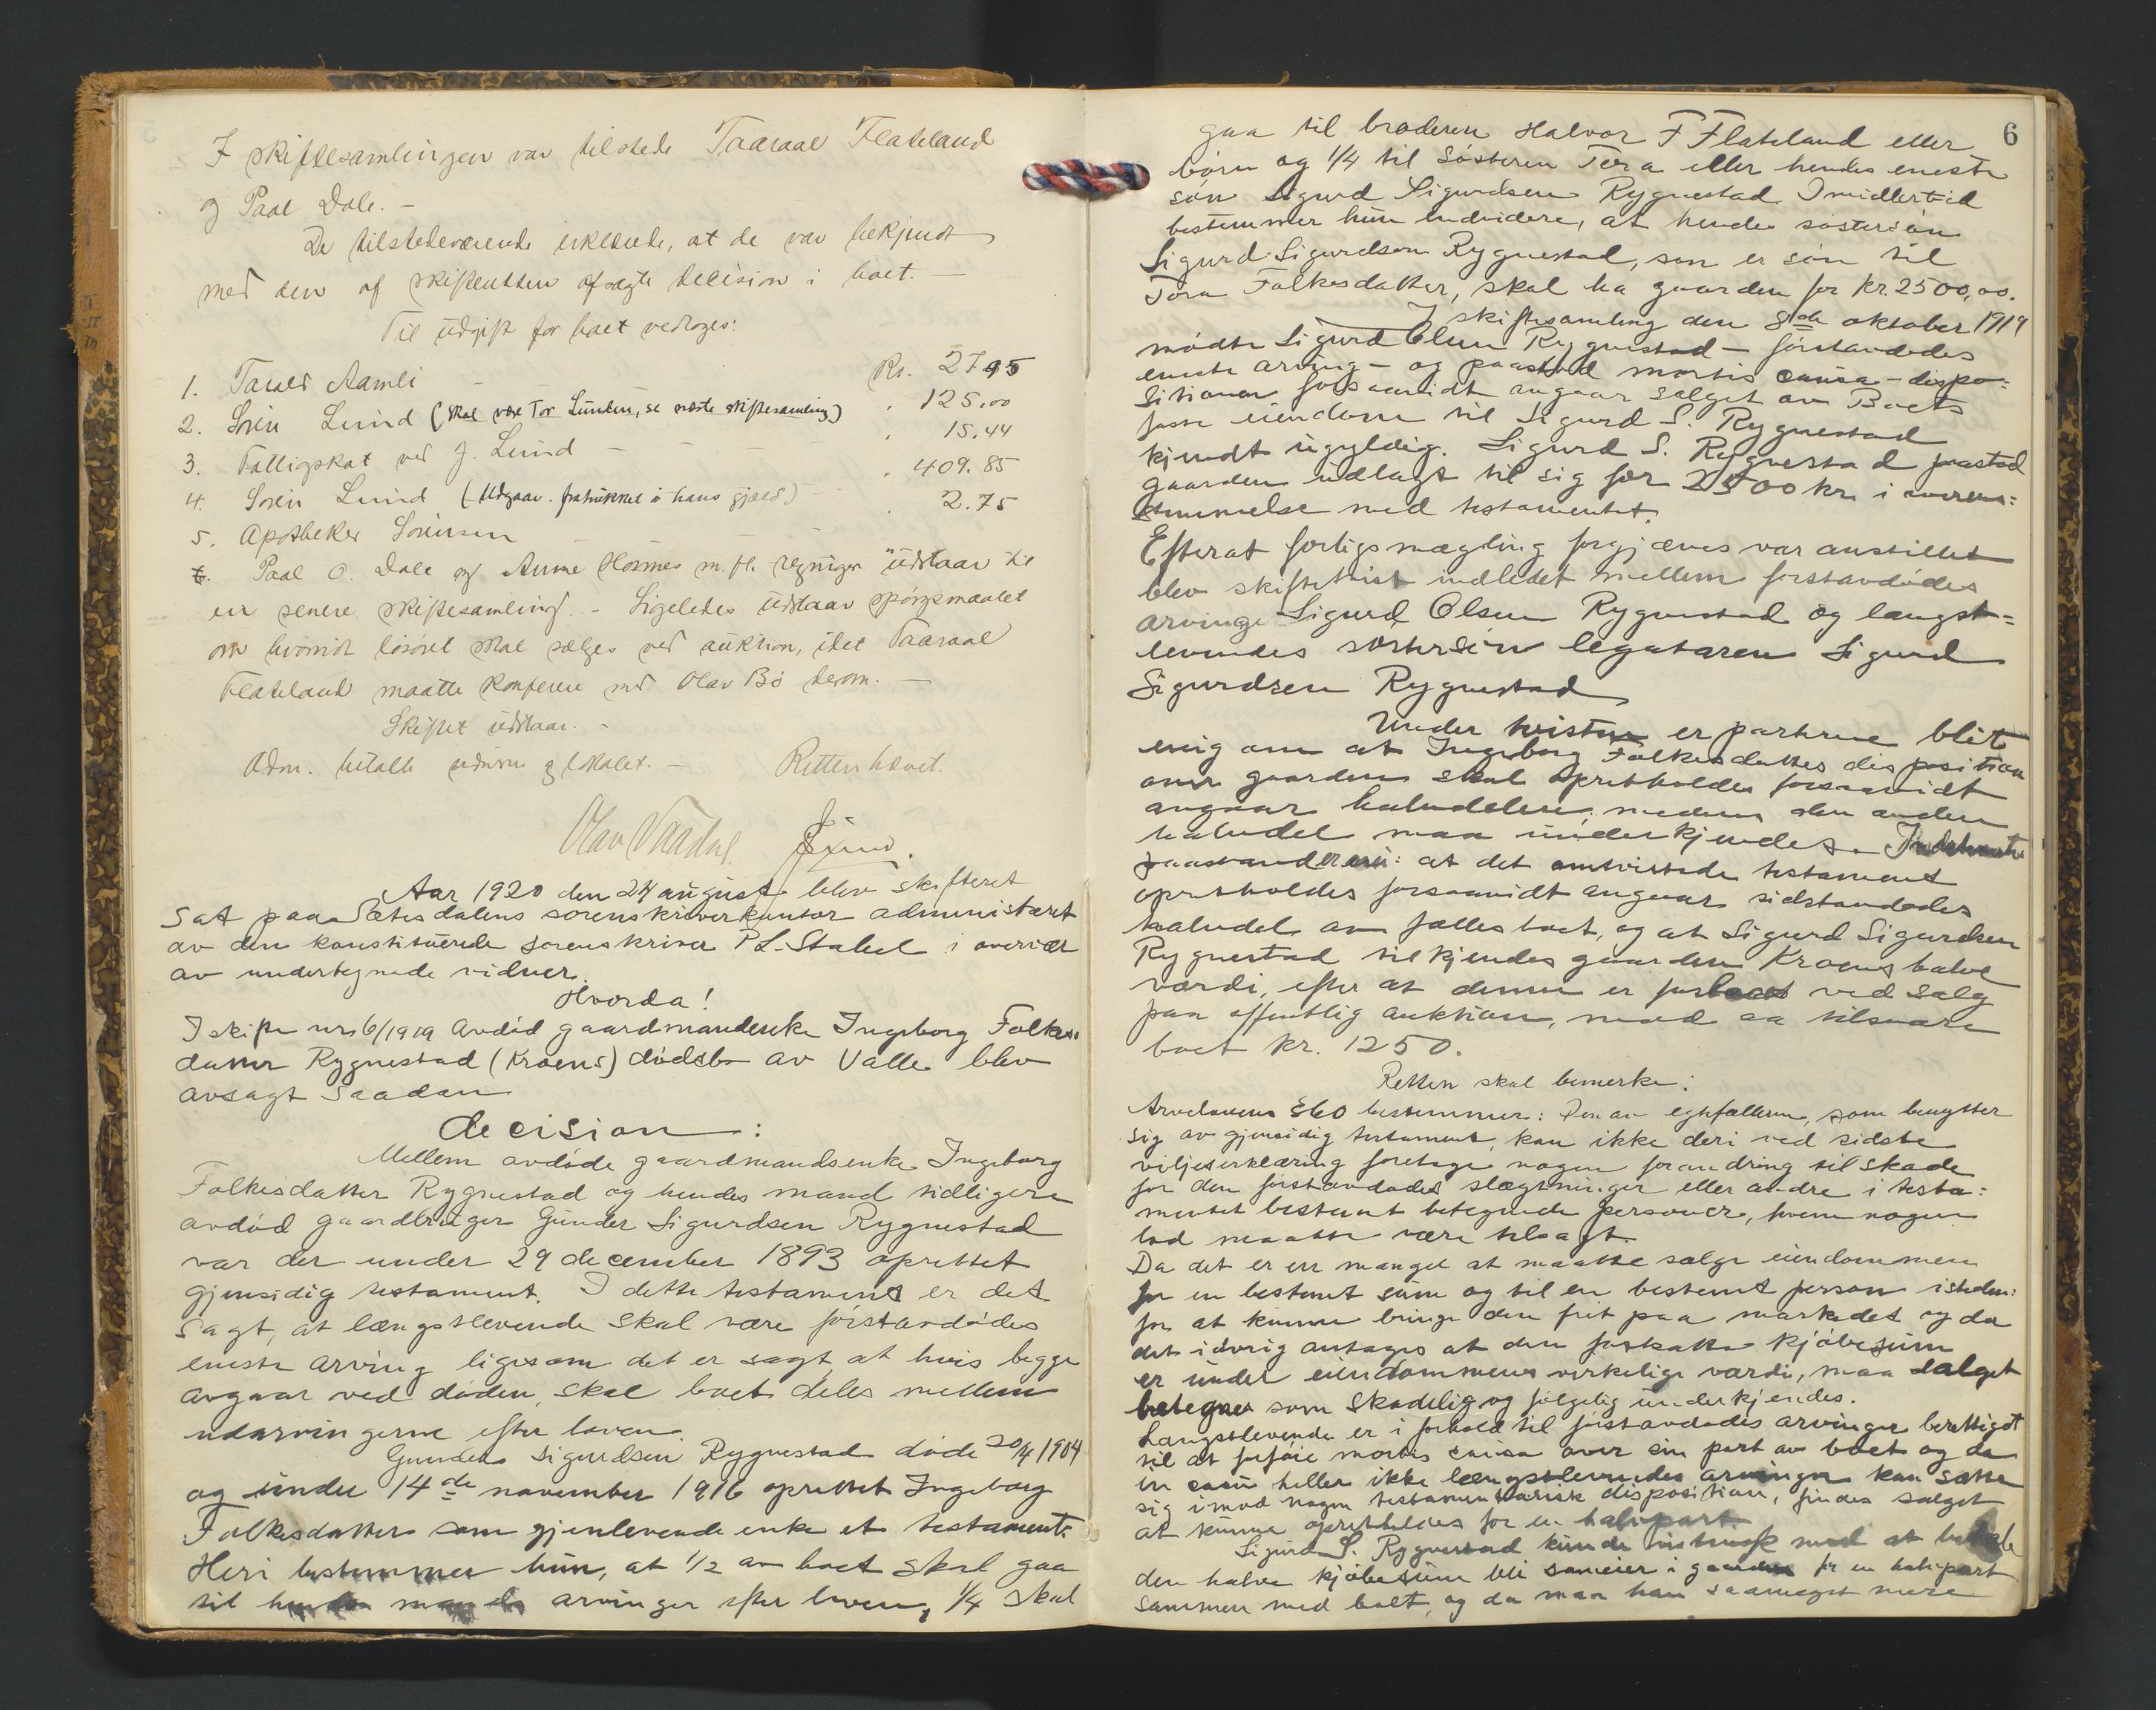 I skiftesamlingen var tilstede Taaraal Flateland
og Paal Dale. -
De tilstedeværende erklærte, at de var bekjendt
med den af skifteretten afsagte decision i boet. -
Til udgift for boet vedtoges:
1. Tarald Aamli - Kr. 27.95
2. Sören Lund (skal være Tor Lunden, se næste skiftesamling) " 125.00
3. Fattigskat ved J. Lund - " 15.44
4. Sören Lund (Udgaar. fratrukket i hans gjæld) " 409.85
5. Apotheker Sörensen - " 2.75
6. Paal O. Dale og Anne Homes m. fl. regninger udstaar til
en senere skiftesamling. - Ligeledes udstaar spörgsmaalet
om hvorvidt lösöret skal sælges ved auktion, idet Taaraal
Flateland maatte konferere med Olav Bö derom. -
Skiftet udstaar. -
Adm. betalte vidnerne af lokalet. - Retten hævet.
Olav Vaadal. Lund.
Aar 1920 den 24 august blev skifteret
sat paa Sætesdalens sorenskriverkontor administreret
av den konstituerede sorenskriver P L. Stabel i overvær
av undertegnede vidner.
Hvorda!
I skifte nr 6/1919 avdöd gaardmandsenke Ingeborg Folkes-
datter Rygnestad (Kroens) dödsbo av Valle blev
avsagt saadan
decision:
Mellem avdöde gaardmandsenke Ingeborg
Folkesdatter Rygnestad og hendes mand tidligere
avdöd gaardbruger Gunder Sigurdsen Rygnestad
var der under 29 december 1893 oprettet
gjensidig testament. I dette testament er det
sagt, at længstlevende skal være förstavdödes
eneste arving ligesom det er sagt, at hvis begge
avgaar ved döden, skal boet deles mellem
utarvingerne efter loven.
Gunder Sigurdsen Rygnestad döde 20/4 1904
og under 14de november 1916 oprettet Ingeborg
Folkesdatter som gjenlevende enke et testament.
Heri bestemmer hun, at 1/2 av boet skal gaa
til hendes mands arvinger efter loven, 1/4 skal
6
gaa til broderen Halvor F Flateland eller
börn og 1/4 til sösteren Tora eller hendes eneste
sön Sigurd Sigurdsen Rygnestad. Imidlertid
bestemmer hun endvidere, at hendes söstersön
Sigurd Sigurdsen Rygnestad, som er sön til
Tora Folkesdatter, skal ha gaarden for kr. 2500,00.
I skiftesamling den 8de oktober 1919
mödte Sigurd Olsen Rygnestad - förstavdödes
eneste arving - og paastod mortis causa - dispo-
sitionen forsaavidt angaar salget av Boets
faste eiendom til Sigurd S. Rygnestad
kjendt ugyldig. Sigurd S. Rygnestad paastod
gaarden utlagt til sig for 2500 kr i overens-
stemmelse med testamentet.
Efterat forligsmægling forgjæves var anstillet
blev skiftetvist indledet mellem förstavdödes
arving Sigurd Olsen Rygnestad og længst-
levendes söstersön legataren Sigurd
Sigurdsen Rygnestad
Under tvisten er parterne blit
enig om at Ingeborg Folkesdatters disposition
over gaarden skal opretholdes forsaavidt
angaar halvdelen, medens den anden
halvdel maa underkjendes.
paastanden: at det omtvistede testament
opretholdes forsaavidt angaar sidstavdödes
halvdel av fælles boet, og at Sigurd Sigurdsen
Rygnestad tilkjendes gaarden Kroens halve
værdi, efter at denne er fastsat ved salg
paa offentlig auktion, mod at tilsvare
boet kr. 1250.
Retten skal bemerke:
Arvelovens §60 bestemmer: Den av egtefællerne, som benytter
sig av gjensidig testament, kan ikke deri ved sidste
viljeserklæring foretage nogen forandring til skade
for den förstavdödes slægtninger eller andre i testa-
mentet bestemt betegnede personer, hvem nogen
lod maatte være tilsagt.
Da det er en mangel at maatte sælge eiendommen
for en bestemt sum og til en bestemt person isteden-
for at kunne bringe den frit paa markedet og da
det iövrig antages at den fastsatte kjöbesum
er under eiendommens virkelige værdi, maa salget
betegnes som skadelig og fölgelig underkjendes.
Længstlevende er i forhold til förstavdödes arvinger berettiget
til at forföie mortis causa over sin part av boet og da
in casu heller ikke længstlevendes arvinger kan sætte
sig imod nogen testamentarisk disposition, findes salget
at kunne opretholdes for en halvpart.
Sigurd S. Rygnestad kunde vistnok med at betale
den halve kjöbesum bli sameier i gaarden for en halvpart
sammen med boet, og da maa han saameget mere